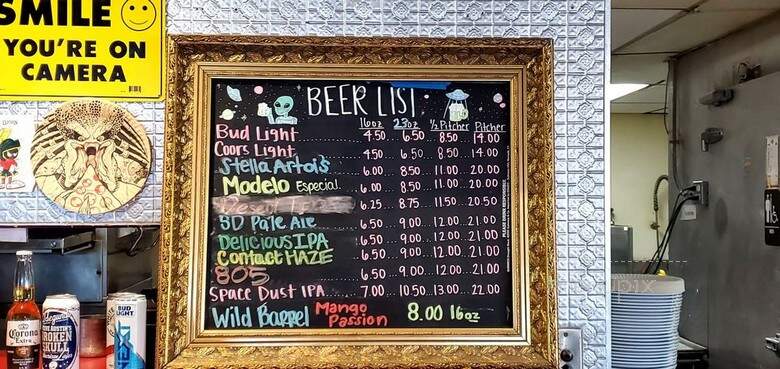 SMILE
YOU'RE ON
CAMERA
BEER LIST
16oz 23oz ½ Pitcher Pitcher
Bud Light 4.50 6.50 8.50 14.00
Coors Light 4.50 6.50 8.50 14.00
Stella Artois 6.00 8.50 11.00 20.00
Modelo Especial 6.00 8.50 11.00 20.00
6.25 8.75 11.50 20.50
SD Pale Ale 6.50 9.00 12.00 21.00
Delicious IPA 6.50 9.00 12.00 21.00
Contact HAZE 6.50 9.00 12.00 21.00
805 6.50 9.00 12.00 21.00
Space Dust IPA 7.00 10.50 13.00 22.00
Wild Barrel Mango Passion 8.00 16oz
Corona
Extra
BROKEN
SKULL
BUD
LIGHT
NEXT